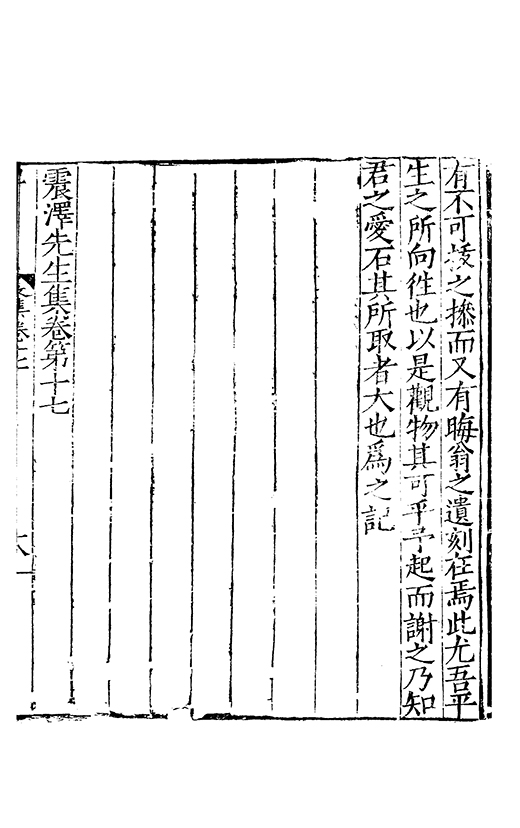 有不可拔之操而又有晦翁之遺刻在焉此尤吾平
生之所向徃也以是觀物其可乎予起而謝之乃知
君之愛石其所取者大也爲之記
震澤先生集卷第十七